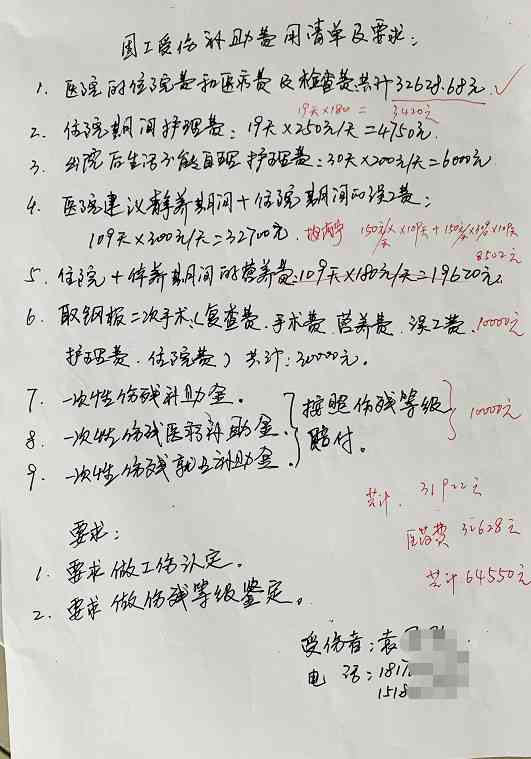 因工受伤补助费用清单及要求:
1. 医院的住院费和医药费及检查费共计32628.68元 ✓
19天×180 = 3420元
2. 住院期间护理费:19天×250元/天=4750元.
3. 出院后生活不能自理护理费:30天×200元/天=6000元
4. 医院建议静养期间+住院期间的误工费:
109天×300元/天=32700元.
150元/天×109天+150元/天×
8502元
5. 住院+停养期间的营养费:109天×180元/天=19620元.
6. 取钢板二次手术(复查费.手术费.营养费.误工费. 10000元
护理费.住院费)共计:30000元.
7. 一次性伤残补助金.
8. 一次性伤残医药补助金. 按照伤残等级 10000元
9. 一次性伤残就业补助金. 赔付.
共计. 31922元
医药费 32628元
共计64550元
要求:
1. 要求做工伤认定.
2. 要求做伤残等级鉴定.
受伤者:袁
电 话:1817
1518